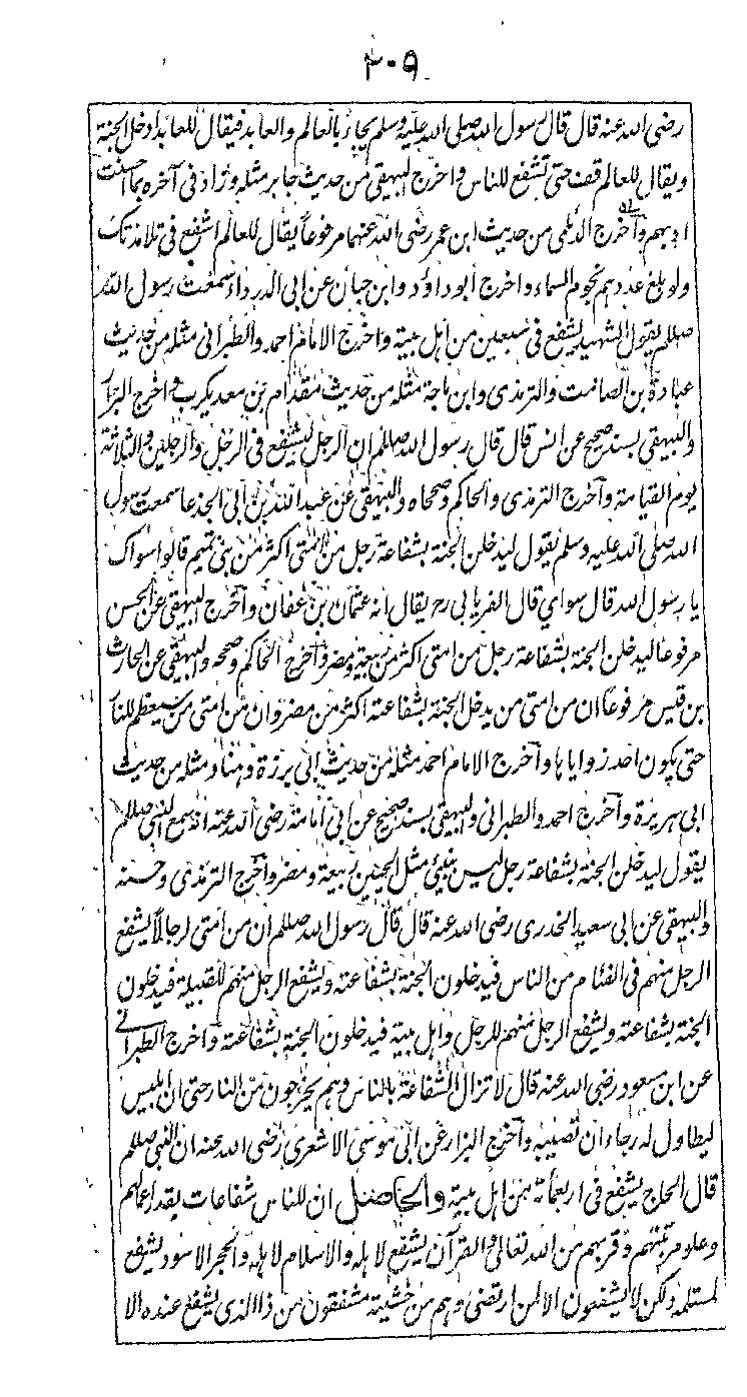 ۳۰۹
رضی الله عنه قال قال رسول الله صلی الله علیه وسلم یجاء بالعالم والعابد فیقال للعابد ادخل الجنة
ویقال للعالم قف حتی تشفع للناس واخرج البیهقی من حدیث جابر مثله وزاد فی آخره بما احسنت
ادبهم وآخرج الدیلمی من حدیث ابن عمر رضی الله عنهما مرفوعاً یقال للعالم اشفع فی تلامذتک
ولو بلغ عددهم نجوم السماء واخرج ابو داؤد وابن حبان عن ابی الدرداء سمعت رسول الله
صللم یقول الشهید یشفع فی سبعین من اهل بیته واخرج الامام احمد والطبرانی مثله من حدیث
عبادة بن الصامت والترمذی وابن ماجة مثله من حدیث مقدام بن معدیکرب واخرج البزار
والبیهقی بسند صحیح عن انس قال قال رسول الله صللم ان الرجل لیشفع فی الرجل والرجلین والثلاثة
یوم القیامة وآخرج الترمذی والحاکم وصححاه والبیهقی عن عبد الله بن ابی الجذعا سمعت رسول
الله صلی الله علیه وسلم یقول لیدخلن الجنة بشفاعة رجل من امتی اکثر من بنی تمیم قالوا سواک
یا رسول الله قال سوای قال الفریابی رح یقال انه عثمان بن عفان وآخرج البیهقی عن الحسن
مرفوعا لیدخلن الجنة بشفاعة رجل من امتی اکثر من ربیعة ومضر وآخرج الحاکم وصححه والبیهقی عن الحارث
بن قیس مرفوعاً ان من امتی من یدخل الجنة بشفاعته اکثر من مضر وان من امتی من سیعظم للنار
حتی یکون احد زوایاها وآخرج الامام احمد مثله من حدیث ابی برزة وهناد مثله من حدیث
ابی هریرة وآخرج احمد والطبرانی والبیهقی بسند صحیح عن ابی امامة رضی الله عنه انه سمع النبی صللم
یقول لیدخلن الجنة بشفاعة رجل لیس بنبی مثل الحیین ربیعة ومضر وآخرج الترمذی وحسنه
والبیهقی عن ابی سعید الخدری رضی الله عنه قال قال رسول الله صللم ان من امتی لرجالاً یشفع
الرجل منهم فی الفئام من الناس فیدخلون الجنة بشفاعته ویشفع الرجل منهم للقبیلة فیدخلون
الجنة بشفاعته ویشفع الرجل منهم للرجل واهل بیته فیدخلون الجنة بشفاعته وآخرج الطبرانی
عن ابن مسعود رضی الله عنه قال لا تزال الشفاعة بالناس وهم یخرجون من النار حتی ان ابلیس
لیطاول له رجاء ان تصیبه وآخرج البزار عن ابی موسی الاشعری رضی الله عنه ان النبی صللم
قال الحاج یشفع فی اربعمائة من اهل بیته والحاصل ان للناس شفاعات بقدر اعمالهم
وعلو مرتبتهم وقربهم من الله تعالی والقرآن یشفع لاهله والاسلام لاهله والحجر الاسود یشفع
لمستلمه ولکن لا یشفعون الا لمن ارتضی وهم من خشیته مشفقون من ذا الذی یشفع عنده الا